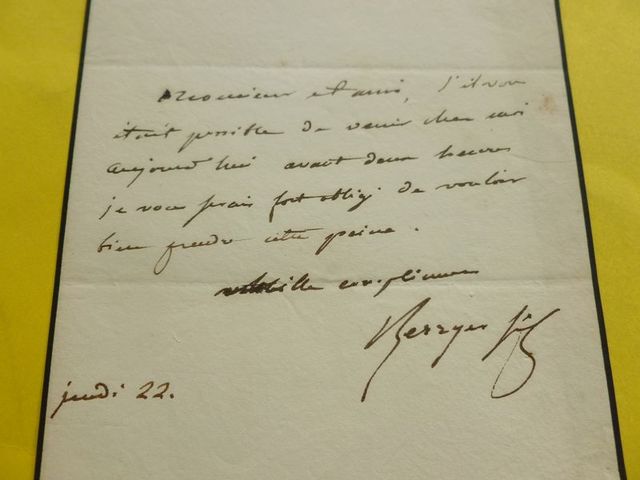 Monsieur et ami, s'il vous
était possible de venir chez moi
aujourd'hui avant deux heures
je vous serais fort obligé de vouloir
bien prendre cette peine.
mille complimens
Berryer fils
jeudi 22.